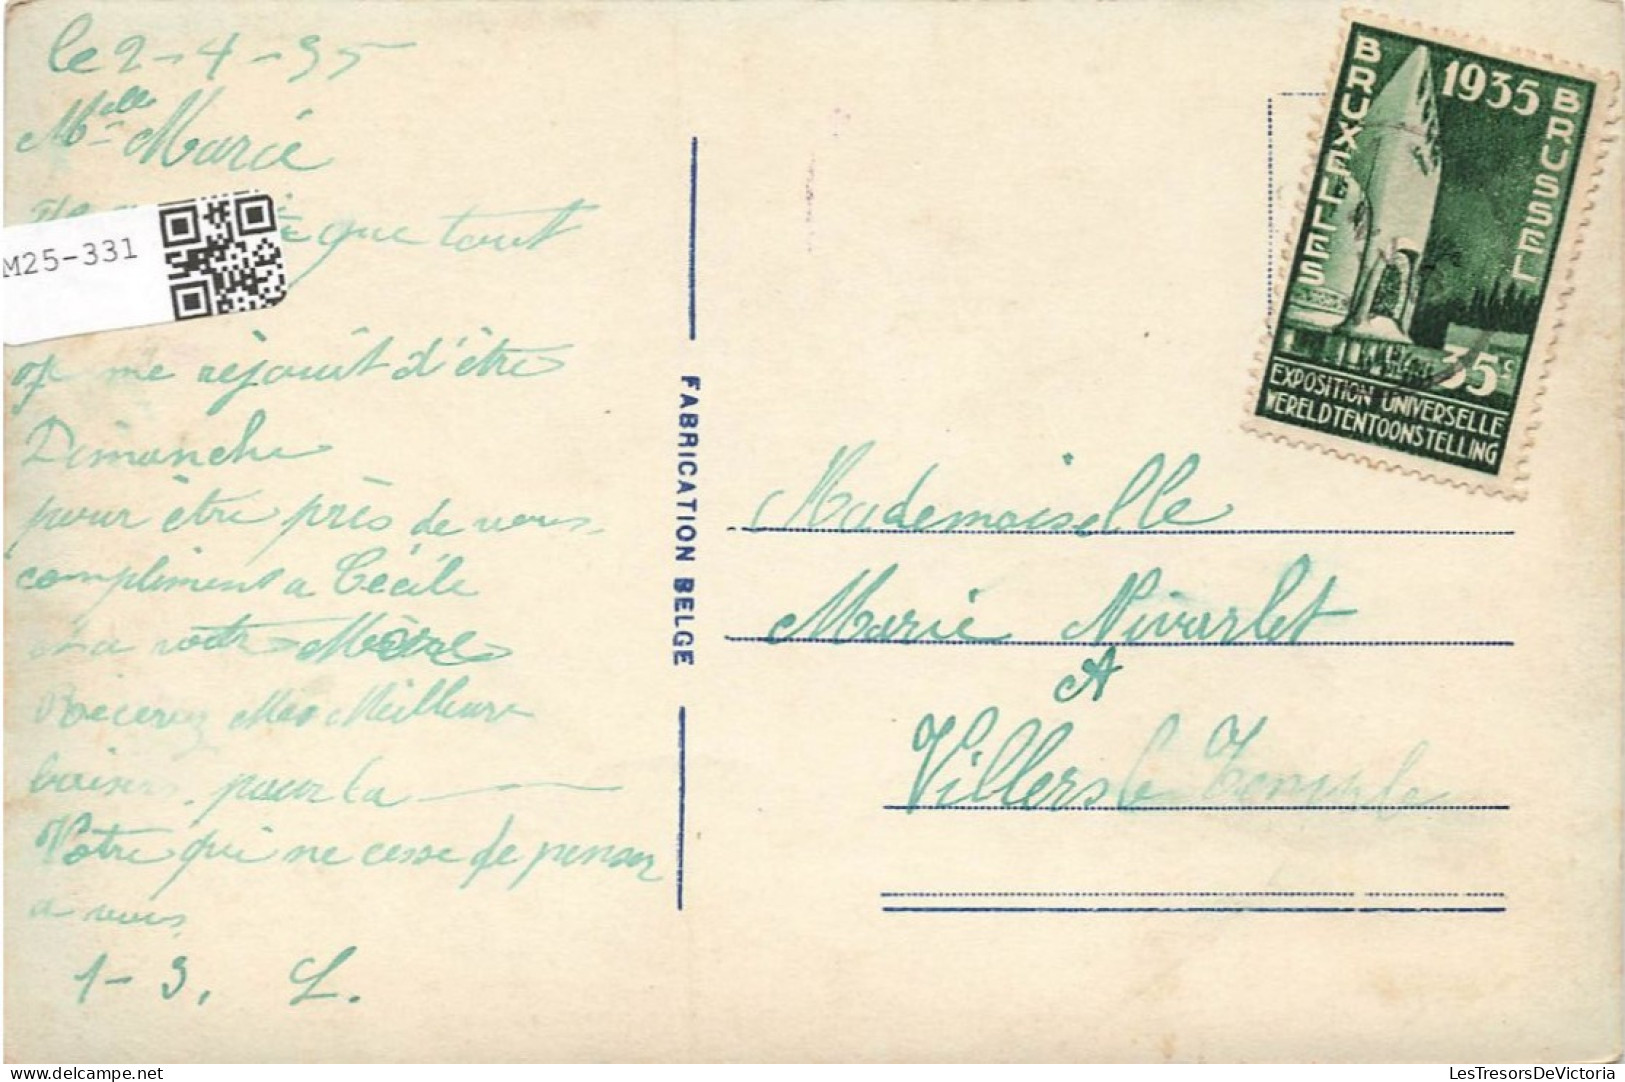 le 2-4-35
Mlle Marie
que tout
M25-331
me réjouit d'être
Dimanche
pour être près de vous
compliment a Cécile
a votre
Recevez Mes Meilleurs
baisers. pour la
Votre qui ne cesse de penser
a vous
1-3. L.
FABRICATION BELGE
BRUXELLES 1935 BRUSSEL
35c
EXPOSITION UNIVERSELLE
WERELDTENTOONSTELLING
Mademoiselle
Marie Nivarlet
A
Villers le Temple
delcampe.net
LesTresorsDeVictoria